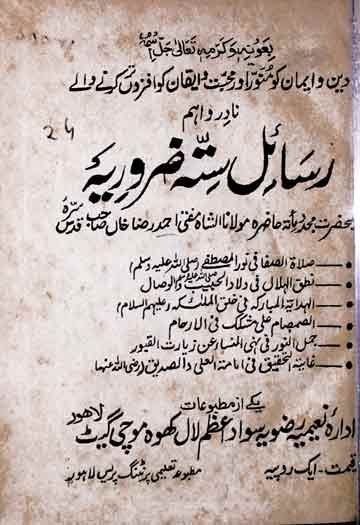 بعونہٖ وکرمہٖ تعالیٰ جل اسمہٗ
دین و ایمان کو منور اور محبت و ایقان کو افزوں تر کرنے والے
نادر و اہم
24
رسائل ستہ ضروریہ
حضرت مجدد مأتہ حاضرہ مولانا الشاہ مفتی احمد رضا خاں صاحب قدس سرہ
صلاۃ الصفا فی نور المصطفےٰ (صلی اللہ علیہ وسلم)
نطق الہلال فی ولاد الحبیب صلی اللہ علیہ وسلم والوصال
الہدایۃ المبارکہ فی خلق الملئکہ (علیہم السلام)
الصمصام علی مشکک فی الارحام
جمل النور فی نہی النساء عن زیارت القبور
غایۃ التحقیق فی امامۃ العلی والصدیق (رضی اللہ عنہما)
یکے از مطبوعات
ادارہ نعیمیہ رضویہ سواد اعظم لال کھوہ موچی گیٹ لاہور
قیمت - ایک روپیہ
مطبوعہ تعلیمی پرنٹنگ پریس لاہور